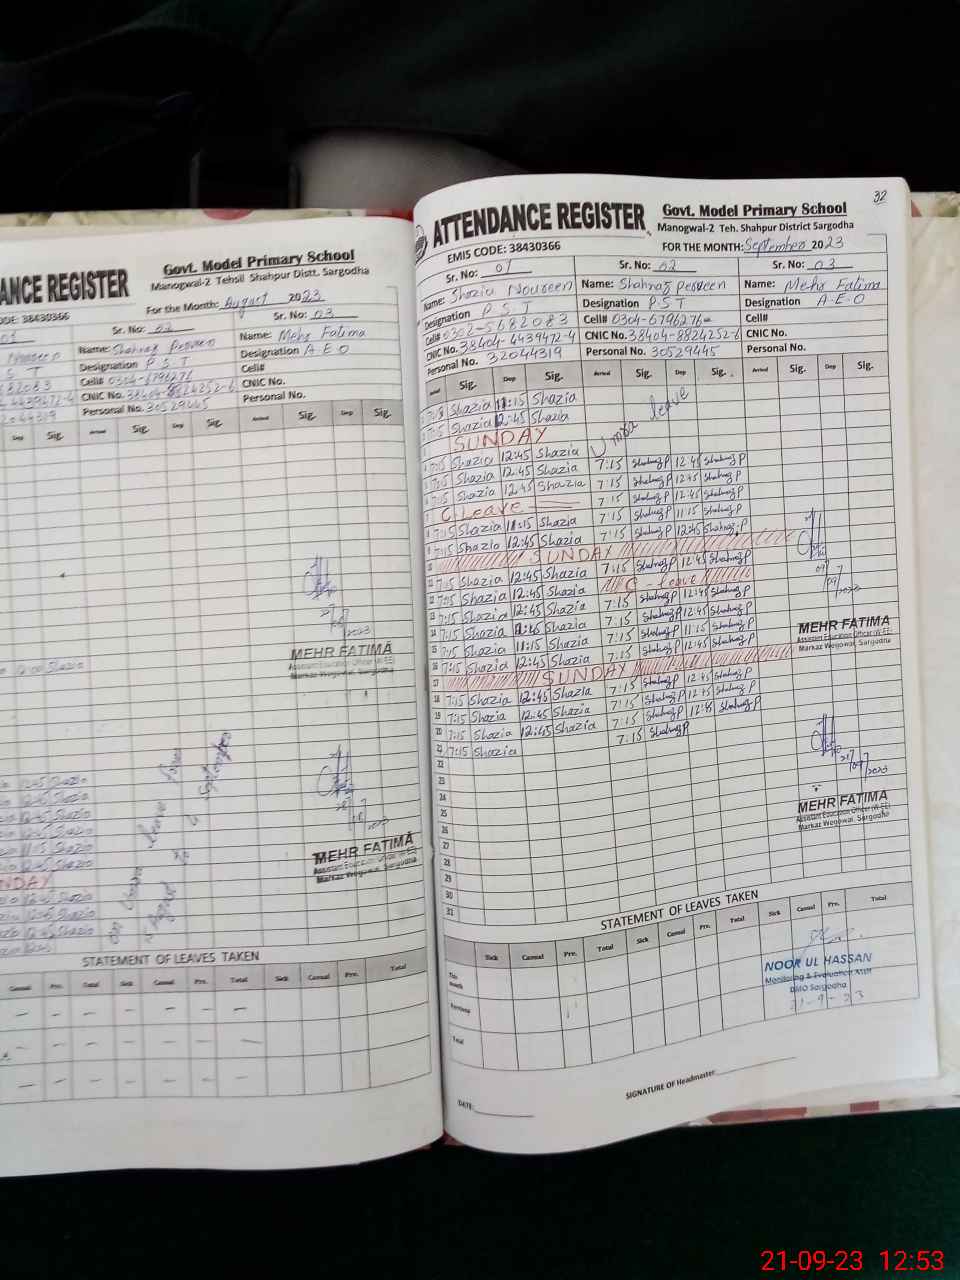 ANCE REGISTER
Govt. Model Primary School
Manogwal-2 Tehsil Shahpur Distt. Sargodha
ODE: 38430366
For the Month: August 2023
01
Sr. No: 02
Sr. No: 03
Name: Shahnaz Perveen
Name: Mehr Fatima
S T
Designation P S T
Designation A E O
682083
Cell# 0304-6796276
Cell#
4439472-4
CNIC No. 38404-8824252-6
CNIC No.
2044319
Personal No. 30529445
Personal No.
Dep Sig. Arrival Sig. Dep Sig. Arrival Sig. Dep Sig.
2023
MEHR FATIMA
Assistant Education Officer (W-EE)
Markaz Wegowal, Sargodha
12:00 Shazia
12:45 Shazia
12:45 Shazia
12:45 Shazia
12:45 Shazia
11:15 Shazia
12:45 Shazia
NDAY
12:45 Shazia
12:45 Shazia
12:45 Shazia
2023
MEHR FATIMA
Assistant Education Officer (W-EE)
Markaz Wegowal, Sargodha
STATEMENT OF LEAVES TAKEN
Casual Prv. Total Sick Casual Prv. Total Sick Casual Prv. Total
32
ATTENDANCE REGISTER
Govt. Model Primary School
Manogwal-2 Teh. Shahpur District Sargodha
EMIS CODE: 38430366
FOR THE MONTH: September 2023
Sr. No: 01
Sr. No: 02
Sr. No: 03
Name: Shazia Noureen
Name: Shahnaz perveen
Name: Mehr Fatima
Designation P S T
Designation P.S T
Designation A-E-O
Cell# 0302-5682083
Cell# 0304-6796276
Cell#
CNIC No. 38404-4439472-4
CNIC No. 38404-8824252-6
CNIC No.
Personal No. 32044319
Personal No. 30529445
Personal No.
Arrival Sig. Dep Sig. Arrival Sig. Dep Sig. Arrival Sig. Dep Sig.
Shazia 11:15 Shazia
Shazia 12:45 Shazia
Umra leave
SUNDAY
7:15 Shazia 12:45 Shazia
7:15 Shazia 12:45 Shazia 7:15 Shahnaz P 12:45 Shahnaz P
7:15 Shazia 12:45 Shazia 7:15 Shahnaz P 12:45 Shahnaz P
C Leave 7:15 Shahnaz P 12:45 Shahnaz P
8 7:15 Shazia 11:15 Shazia 7:15 Shahnaz P 11:15 Shahnaz P
9 7:15 Shazia 12:45 Shazia 7:15 Shahnaz P 12:45 Shahnaz P
10 SUNDAY
11 7:15 Shazia 12:45 Shazia 7:15 Shahnaz P 12:45 Shahnaz P
12 7:15 Shazia 12:45 Shazia C - Leave
13 7:15 Shazia 12:45 Shazia 7:15 Shahnaz P 12:45 Shahnaz P
14 7:15 Shazia 12:45 Shazia 7:15 Shahnaz P 12:45 Shahnaz P
15 7:15 Shazia 11:15 Shazia 7:15 Shahnaz P 11:15 Shahnaz P
16 7:15 Shazia 12:45 Shazia 7:15 Shahnaz P 12:45 Shahnaz P
17 SUNDAY
18 7:15 Shazia 12:45 Shazia 7:15 Shahnaz P 12:45 Shahnaz P
19 7:15 Shazia 12:45 Shazia 7:15 Shahnaz P 12:45 Shahnaz P
20 7:15 Shazia 12:45 Shazia 7:15 Shahnaz P 12:45 Shahnaz P
7:15 Shazia 7:15 Shahnaz P
22
23
24
25
26
27
28
29
30
31
09/2023
MEHR FATIMA
Assistant Education Officer (W-EE)
Markaz Wegowal, Sargodha
21/09/2023
MEHR FATIMA
Assistant Education Officer (W-EE)
Markaz Wegowal, Sargodha
STATEMENT OF LEAVES TAKEN
Sick Casual Prv. Total Sick Casual Prv. Total Sick Casual Prv. Total
This month
Previous
Total
NOOR UL HASSAN
Monitoring & Evaluation Asstt
DMO Sargodha
21-9-23
SIGNATURE OF Headmaster
DATE:
21-09-23 12:53